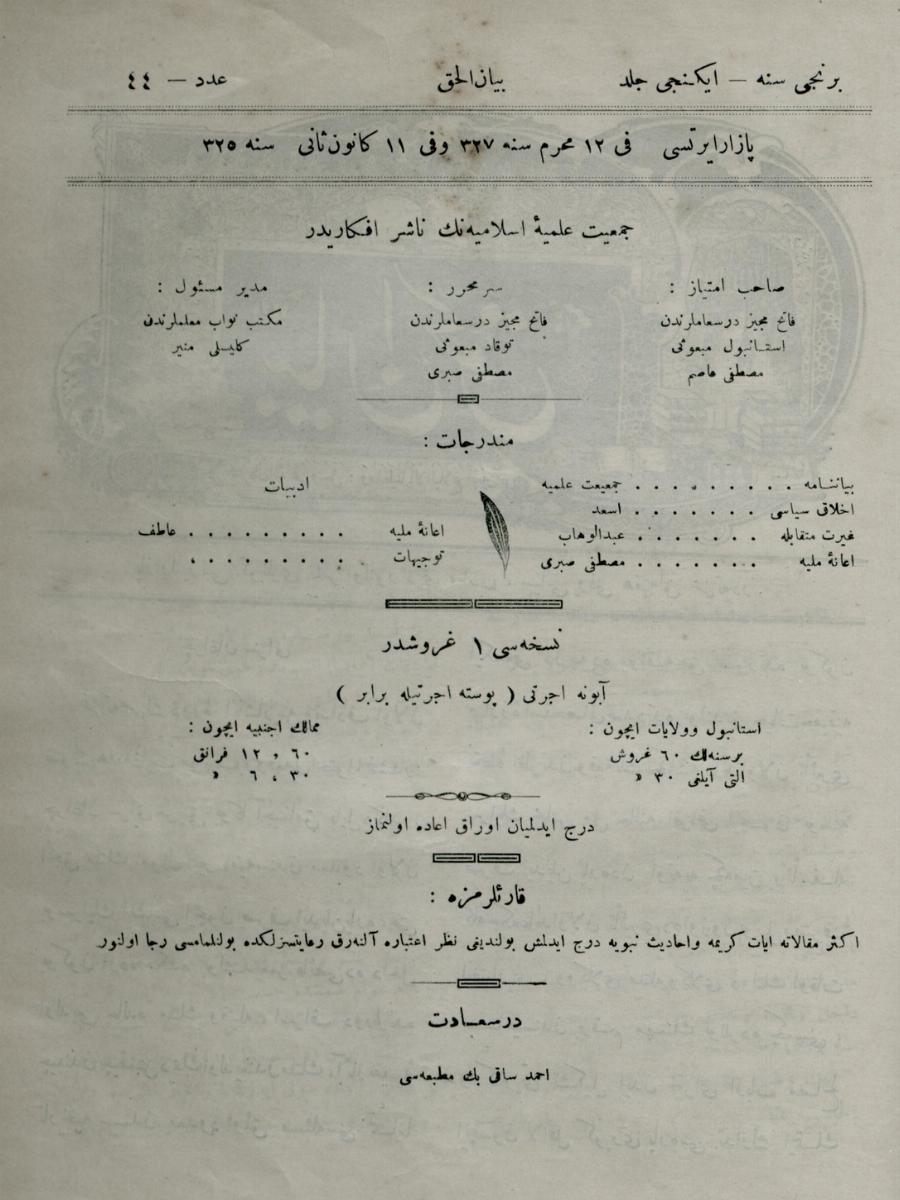 برنجی سنه — ایکنجی جلد بیان‌الحق عدد — ٤٤
پازارایرتسی فی ١٢ محرم سنه ٣٢٧ وفی ١١ کانون‌ثانی سنه ٣٢٥
جمعیت علمیهٔ اسلامیه‌نك ناشر افکاریدر
صاحب امتیاز :
فاتح مجیز درسعاملرندن
استانبول مبعوثی
مصطفی عاصم
سر محرر :
فاتح مجیز درسعاملرندن
توقاد مبعوثی
مصطفی صبری
مدیر مسئول :
مکتب نواب معلملرندن
کلیسلی منیر
مندرجات :
بیاننامه . . . . . . . . . جمعیعت علمیه
اخلاق سیاسی . . . . . . . اسعد
غیرت متقابله . . . . . . . عبدالوهاب
اعانهٔ ملیه . . . . . . . مصطفی صبری
ادبیات
اعانهٔ ملیه . . . . . . . . . عاطف
توجیهات . . . . . . . . . ،
نسخه‌سی ١ غروشدر
آبونه اجرتی ( پوسته اجرتیله برابر )
استانبول وولایات ایچون :
برسنه‌لك ٦٠ غروش
التی آیلغی ٣٠ »
ممالك اجنبیه ایچون :
٦٠ و ١٢ فرانق
٣٠ ، ٦ »
درج ایدلمیان اوراق اعاده اولنماز
قارئلرمزه :
اکثر مقالاته ایات کریمه واحادیث نبویه درج ایدلمش بولندیغی نظر اعتباره آلنه‌رق رعایتسزلکده بولنلمامسی رجا اولنور
درسعادت
احمد ساقی بك مطبعه‌سی